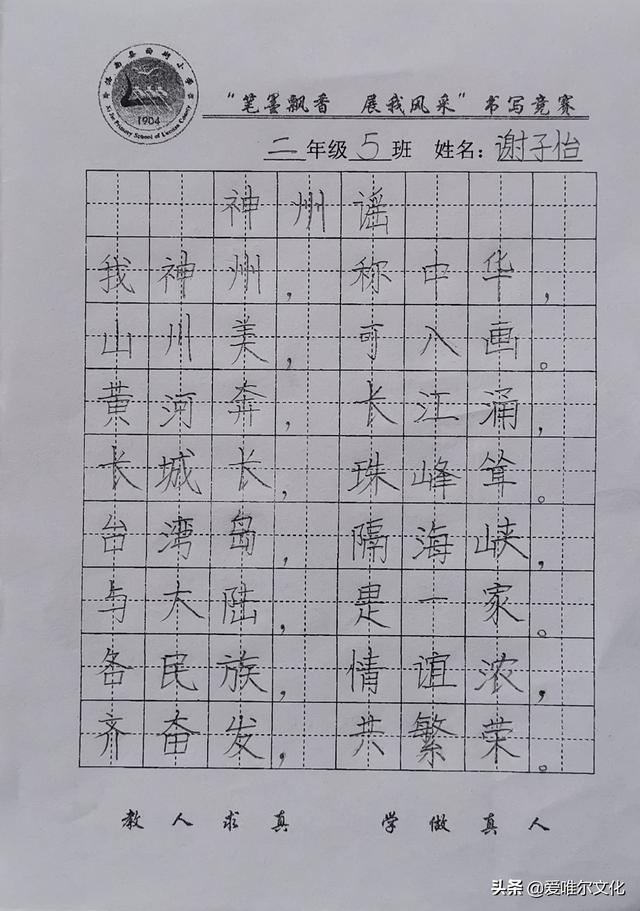 1904
Xi Jie Primary School of Luannan County
“笔墨飘香 展我风采”书写竞赛
二年级5班 姓名：谢子怡
神州谣
我神州，称中华，
山川美，可入画。
黄河奔，长江涌，
长城长，珠峰耸。
台湾岛，隔海峡，
与大陆，是一家。
各民族，情谊浓，
齐奋发，共繁荣。
教人求真 学做真人
头条 @爱唯尔文化